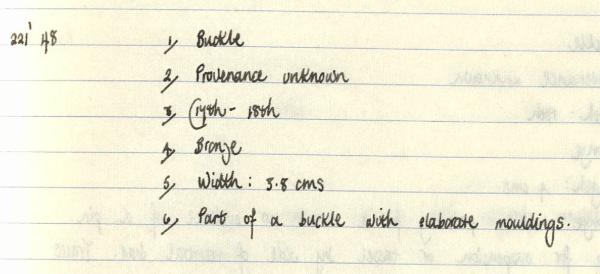 221' 48 1, Buckle
2, Provenance unknown
3, (14th - 18th
4, Bronze
5, Width: 3.8 cms
6, Part of a buckle with elaborate mouldings.